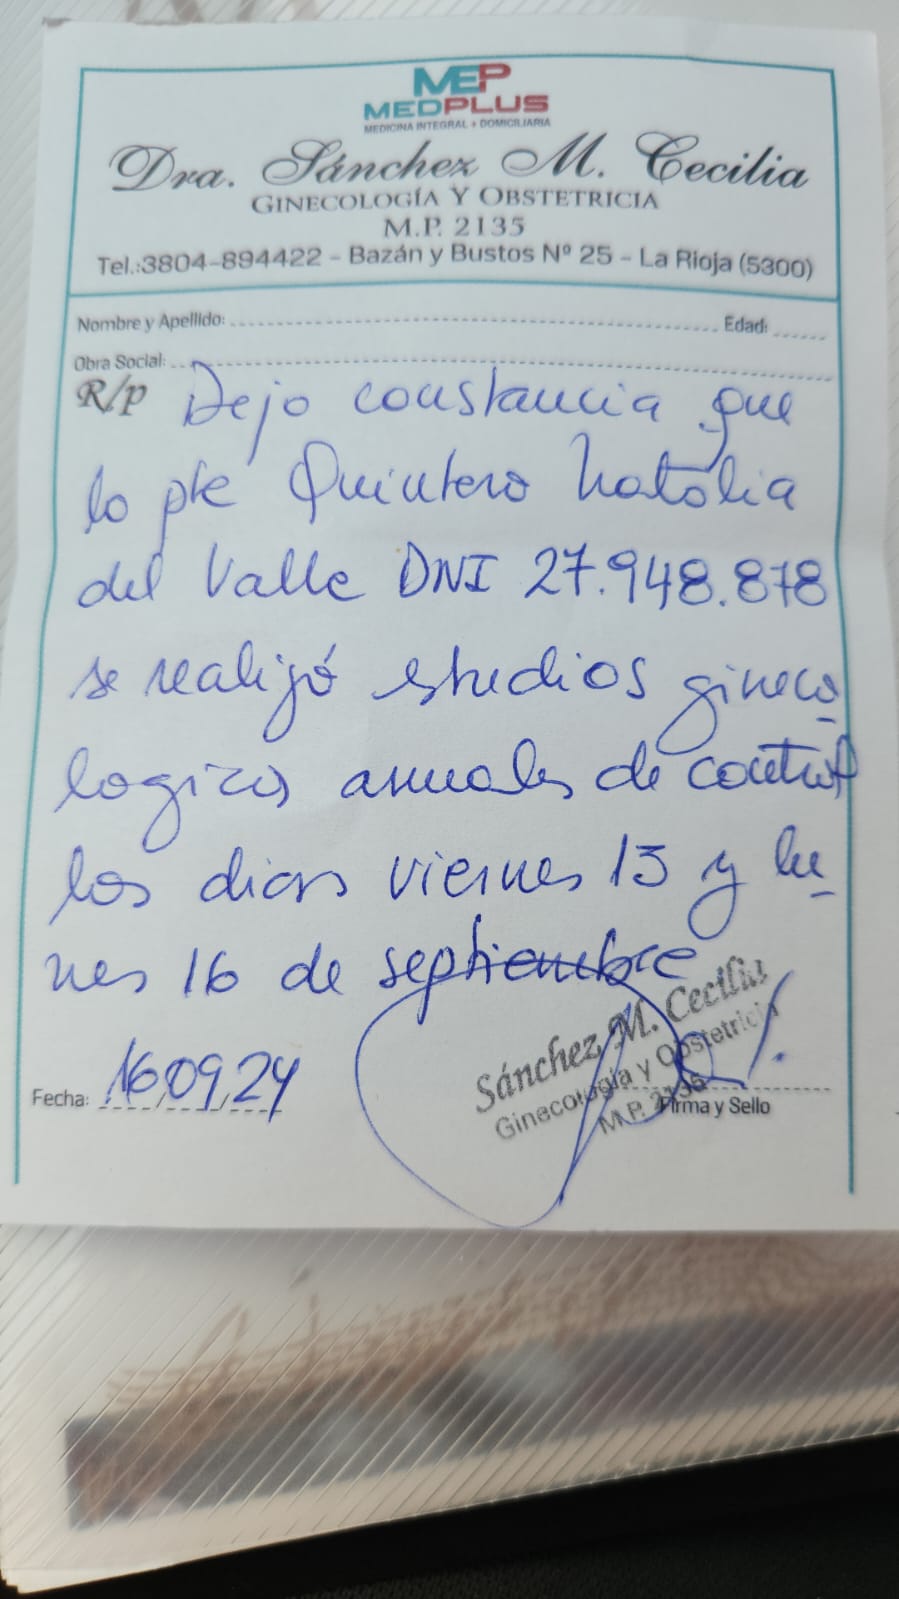 MEP
MEDPLUS
MEDICINA INTEGRAL + DOMICILIARIA
Dra. Sánchez M. Cecilia
GINECOLOGÍA Y OBSTETRICIA
M.P. 2135
Tel.:3804-894422 - Bazán y Bustos Nº 25 - La Rioja (5300)
Nombre y Apellido: Edad:
Obra Social:
R/p Dejo constancia que
la pte Quintero Natalia
del Valle DNI 27.948.878
se realizó estudios gineco
logicos anuales de control
los dias viernes 13 y lu
nes 16 de septiembre
Sánchez M. Cecilia
Ginecología y Obstetricia
M.P. 2135
Fecha: 16,09,24
Firma y Sello